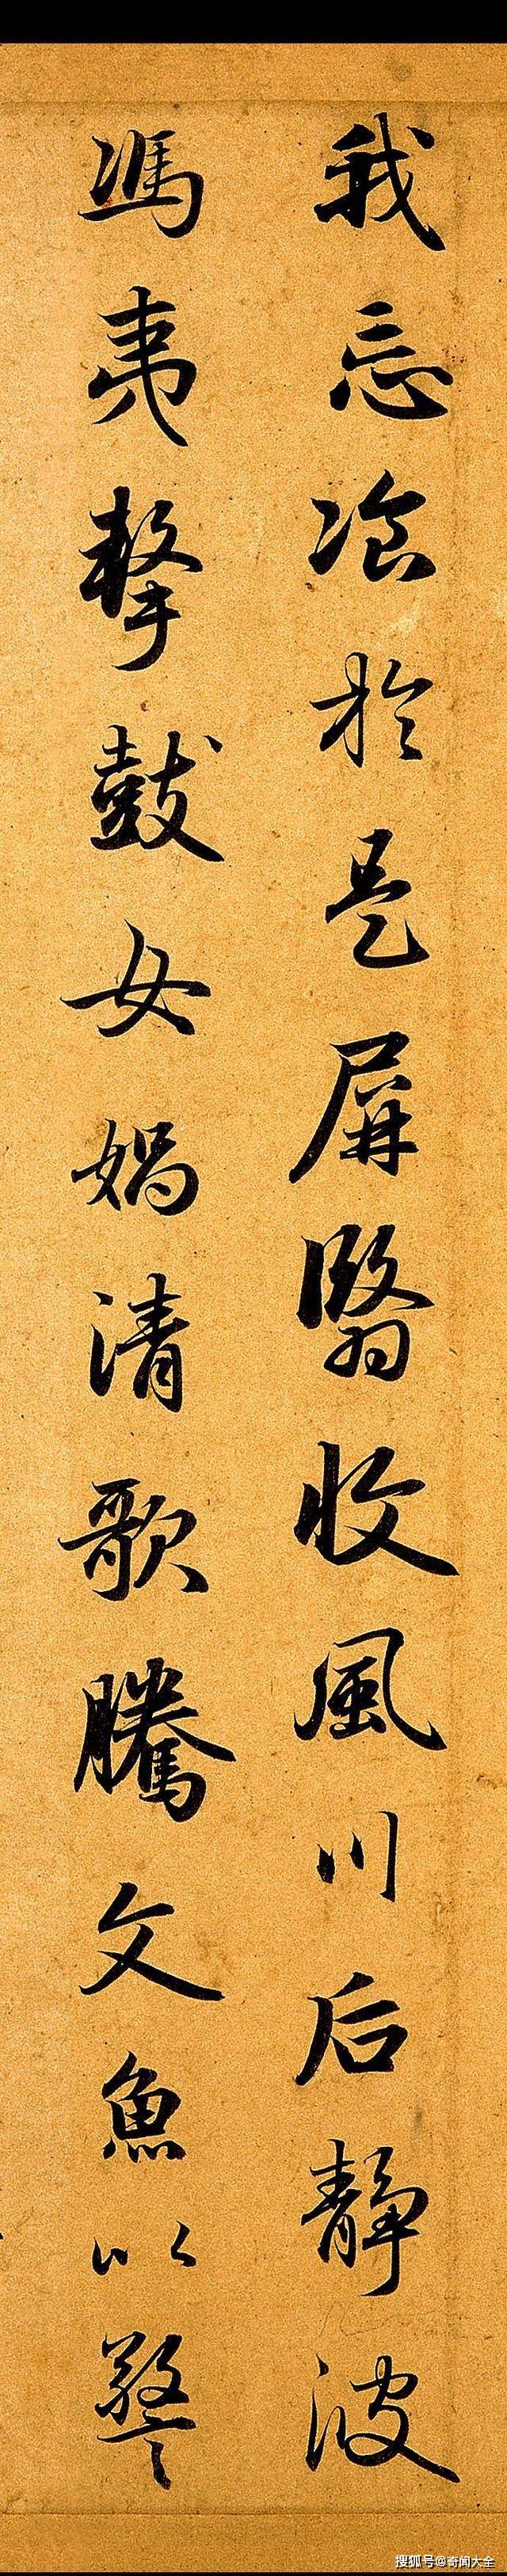 我忘飡於是屏翳收風川后静波
馮夷擊鼓女媧清歌騰文魚以警
搜狐号@奇闻大全